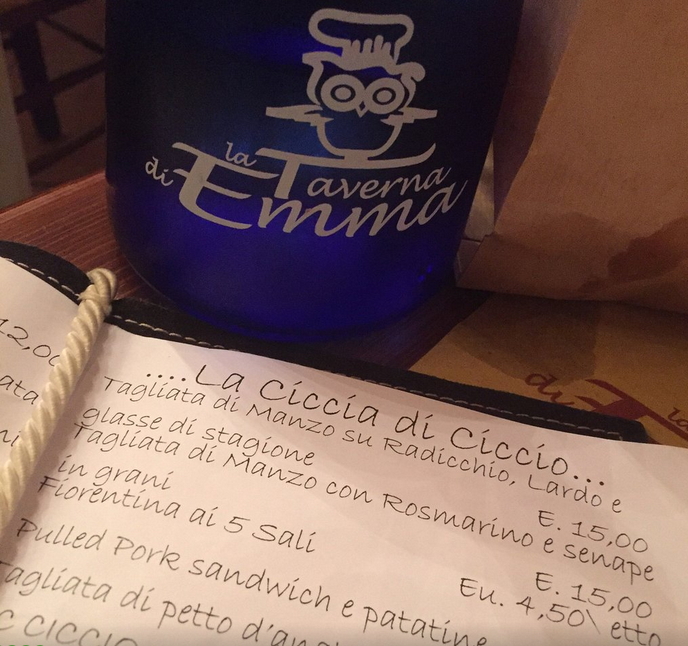 la Taverna
di Emma
12,00
....La Ciccia di Ciccio...
Tagliata di Manzo su Radicchio, Lardo e
glasse di stagione
E. 15,00
Tagliata di Manzo con Rosmarino e senape
in grani
E. 15,00
Fiorentina ai 5 Sali
Eu. 4,50\ etto
Pulled Pork sandwich e patatine
Tagliata di petto d'an
C CICCIO
di T la